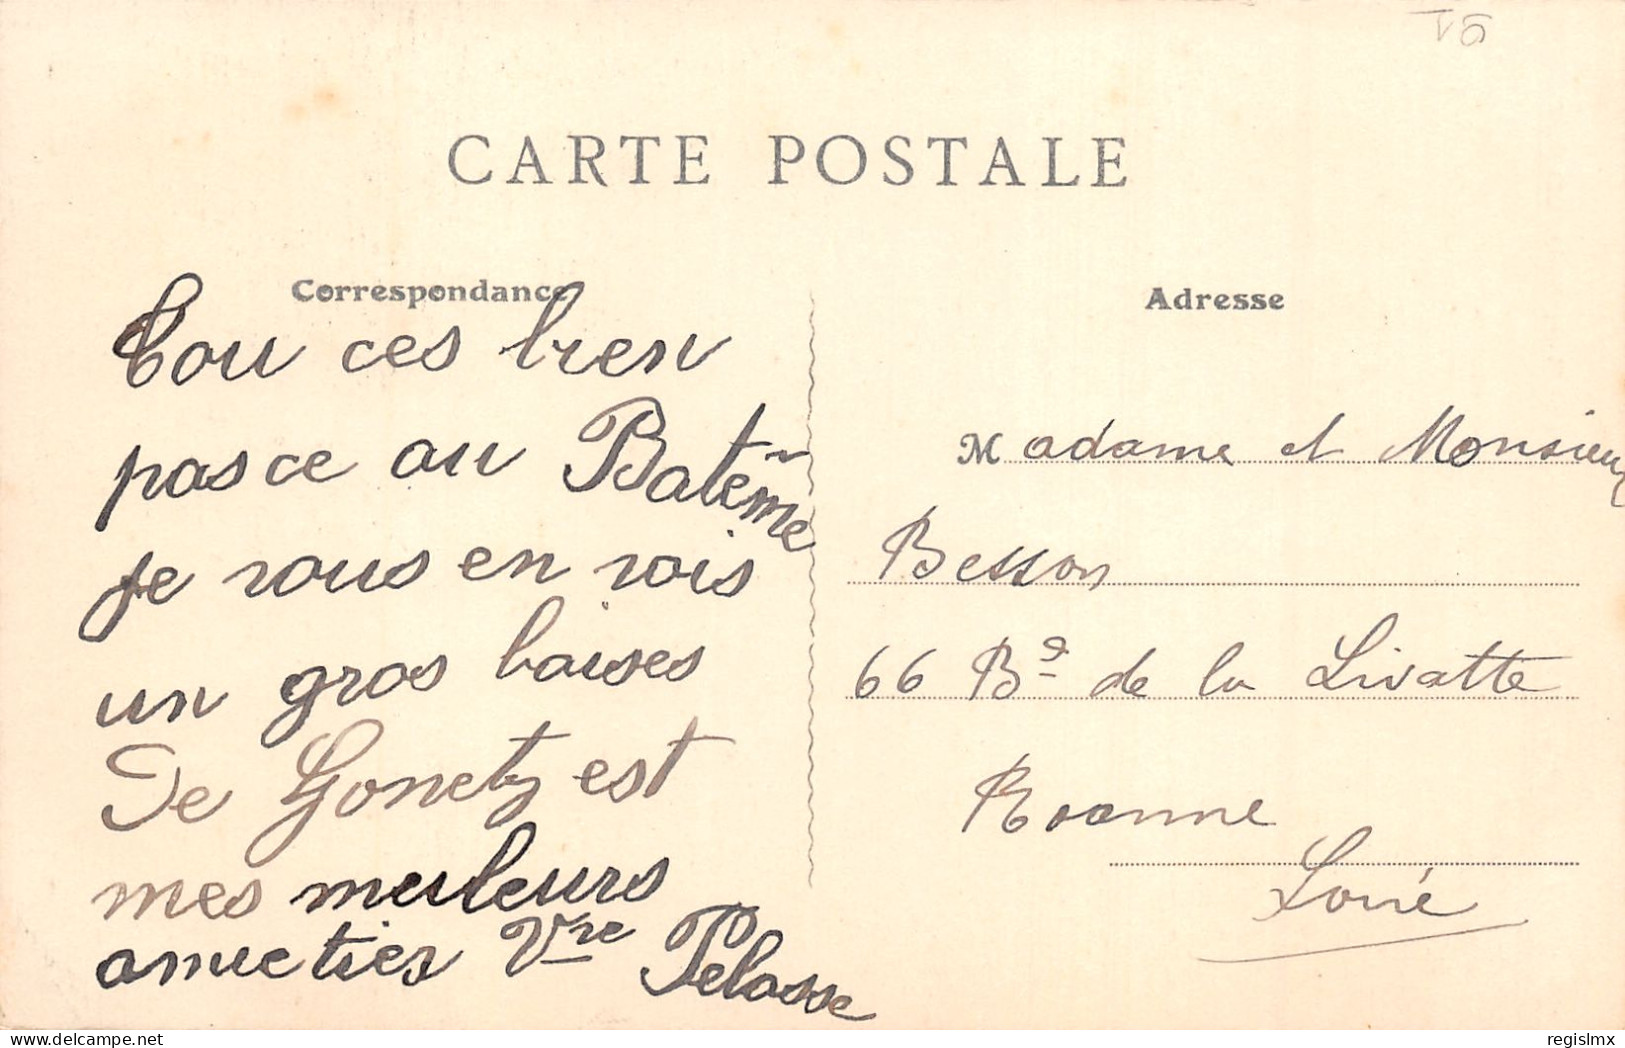 CARTE POSTALE
Correspondance
Tou ces bien
pasce au Batême
je vous en vois
un gros baises
De Gonetz est
mes meileurs
amictier Vve Pelosse
Adresse
Madame et Monsieur
Besson
66 Bd de la Livatte
Roanne
Loire
regislmx